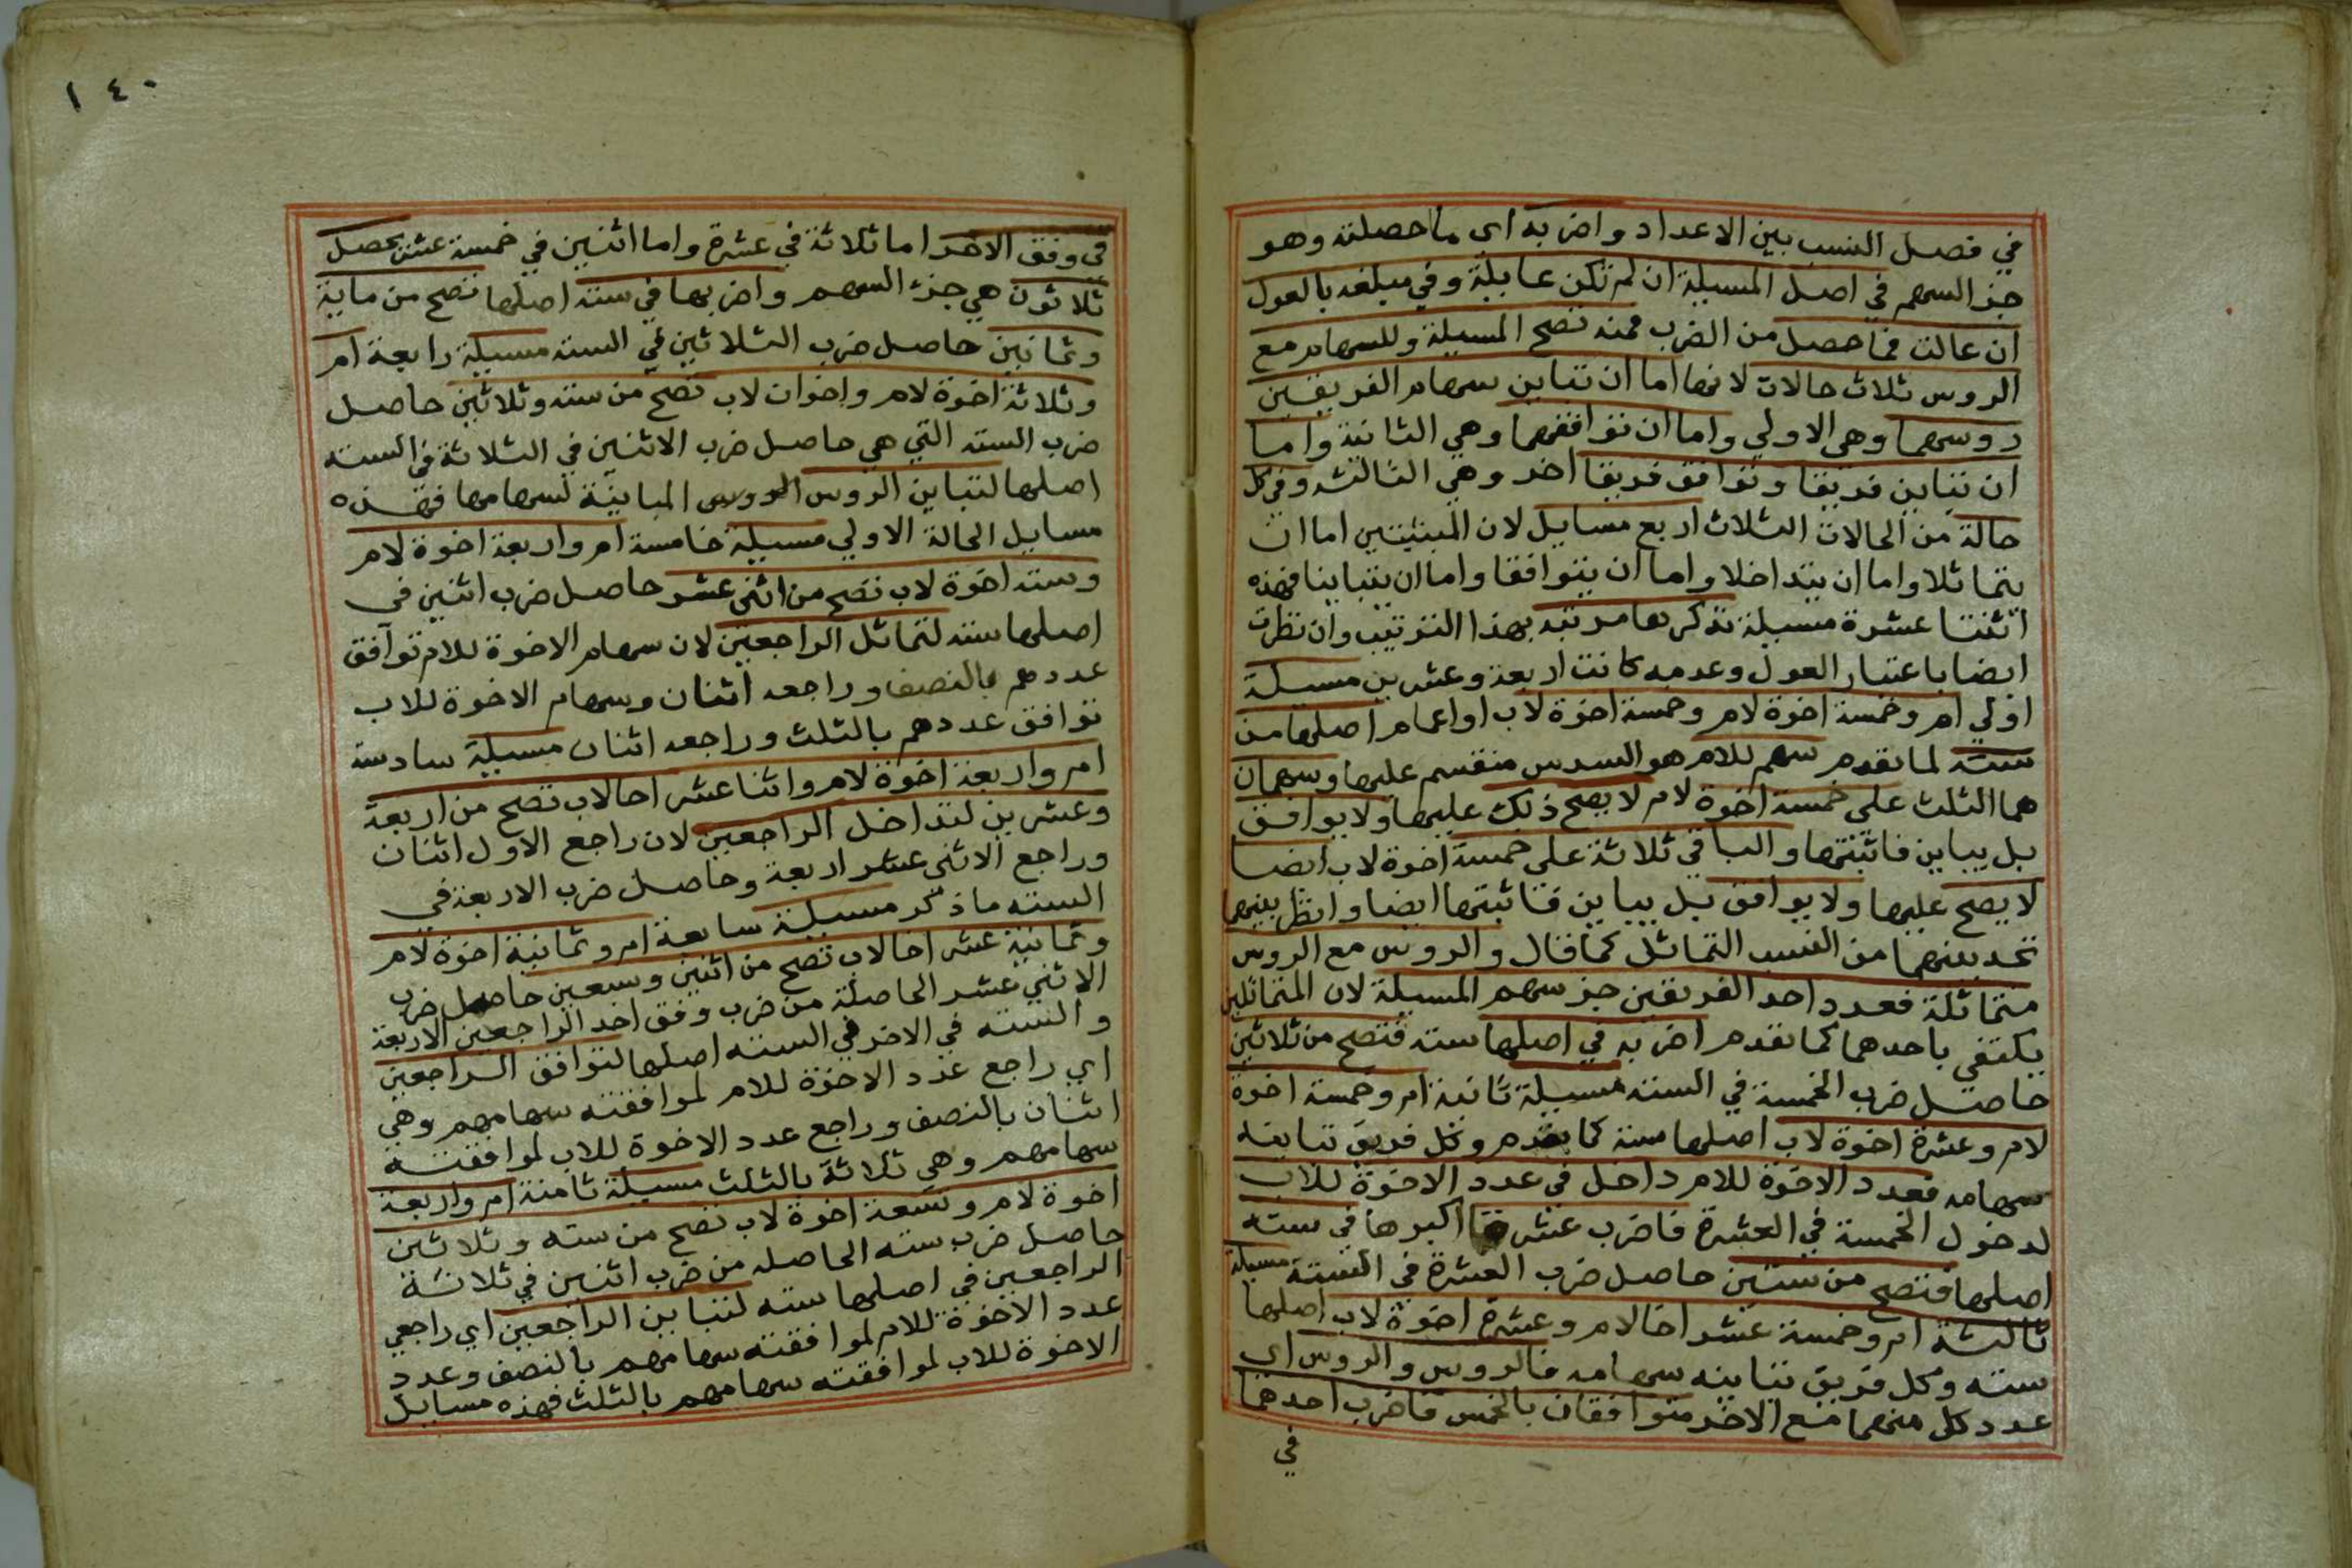 في فصل النسب بين الاعداد واضربه اي ما حصلته وهو
جز السهم في اصل المسيلة ان لم تكن عايلة وفي مبلغه بالعول
ان عالت فما حصل من الضرب فمنه تصح المسيلة وللسهام مع
الروس ثلاث حالات لانها اما ان تباين سهام الفريقين
روسهما وهي الاولي واما ان توافقهما وهي الثانية واما
ان تباين فريقا وتوافق فريقا اخر وهي الثالثه وفي كل
حالة من الحالات الثلاث اربع مسايل لان المبنيتين اما ان
يتماثلا واما ان يتداخلا واما ان يتوافقا واما ان يتباينا فهذه
اثنتا عشرة مسيلة نذكرها مرتبه بهذا الترتيب وان نظرت
ايضا باعتبار العول وعدمه كانت اربعة وعشرين مسيلة
اولي ام وخمسة اخوة لام وخمسة اخوة لاب او اعمام اصلها من
سته لما تقدم سهم للام هو السدس منقسم عليها وسهمان
هما الثلث على خمسة اخوة لام لا يصح ذلك عليها ولا يوافق
بل يباين فاثبتها والباقي ثلاثة على خمسة اخوة لاب ايضا
لا يصح عليها ولا يوافق بل يباين فاثبتها ايضا وانظر بينهما
تجد بينهما من النسب التماثل كما قال والروس مع الروس
متماثلة فعدد احد الفريقين جز سهم المسيلة لان المتماثلين
يكتفي باحدهما كما تقدم اضربه في اصلها سته فتصح من ثلاثين
حاصل ضرب الخمسة في السته مسيلة ثانية ام وخمسة اخوة
لام وعشرة اخوة لاب اصلها ستة كما تقدم وكل فريق تباينه
سهامه فعدد الاخوة للام داخل في عدد الاخوة للاب
لدخول الخمسة في العشرة فاضرب عشرة اكبرها في سته
اصلها فتصح من ستين حاصل ضرب العشرة في الستة مسيلة
ثالثة ام وخمسة عشر اخا لام وعشرة اخوة لاب اصلها
سته وكل فريق تباينه سهامه فالروس والروس اي
عدد كل منهما مع الاخر متوافقان بالخمس فاضرب احدهما
في
١٤٠
في وفق الاخر اما ثلاثة في عشرة واما اثنين في خمسة عشر يحصل
ثلاثون هي جزء السهم واضربها في سته اصلها تصح من ماية
وثمانين حاصل ضرب الثلاثين في السته مسيلة رابعة ام
وثلاثة اخوة لام واخوان لاب تصح من سته وثلاثين حاصل
ضرب السته التي هي حاصل ضرب الاثنين في الثلاثة في السته
اصلها لتباين الروس الروس المباينة لسهامها فهذه
مسايل الحالة الاولي مسيلة خامسة ام واربعة اخوة لام
وسته اخوة لاب تصح من اثني عشر حاصل ضرب اثنين في
اصلها سته لتماثل الراجعين لان سهام الاخوة للام توافق
عددهم بالنصف وراجعه اثنان وسهام الاخوة للاب
توافق عددهم بالثلث وراجعه اثنان مسيلة سادسة
ام واربعة اخوة لام واثنا عشر اخا لاب تصح من اربعة
وعشرين لتداخل الراجعين لان راجع الاول اثنان
وراجع الاثني عشر اربعة وحاصل ضرب الاربعة في
السته ما ذكر مسيلة سابعة ام وثمانية اخوة لام
وثمانية عشر اخا لاب تصح من اثنين وسبعين حاصل ضرب
الاثني عشر الحاصلة من ضرب وفق احد الراجعين الاربعة
والسته في الاخر في السته اصلها لتوافق الراجعين
اي راجع عدد الاخوة للام لموافقته سهامهم وهي
اثنان بالنصف وراجع عدد الاخوة للاب لموافقته
سهامهم وهي ثلاثة بالثلث مسيلة ثامنة ام واربعة
اخوة لام وتسعة اخوة لاب تصح من سته وثلاثين
حاصل ضرب سته الحاصله من ضرب اثنين في ثلاثة
الراجعين في اصلها سته لتباين الراجعين اي راجعي
عدد الاخوة للام لموافقته سهامهم بالنصف وعدد
الاخوة للاب لموافقته سهامهم بالثلث فهذه مسايل